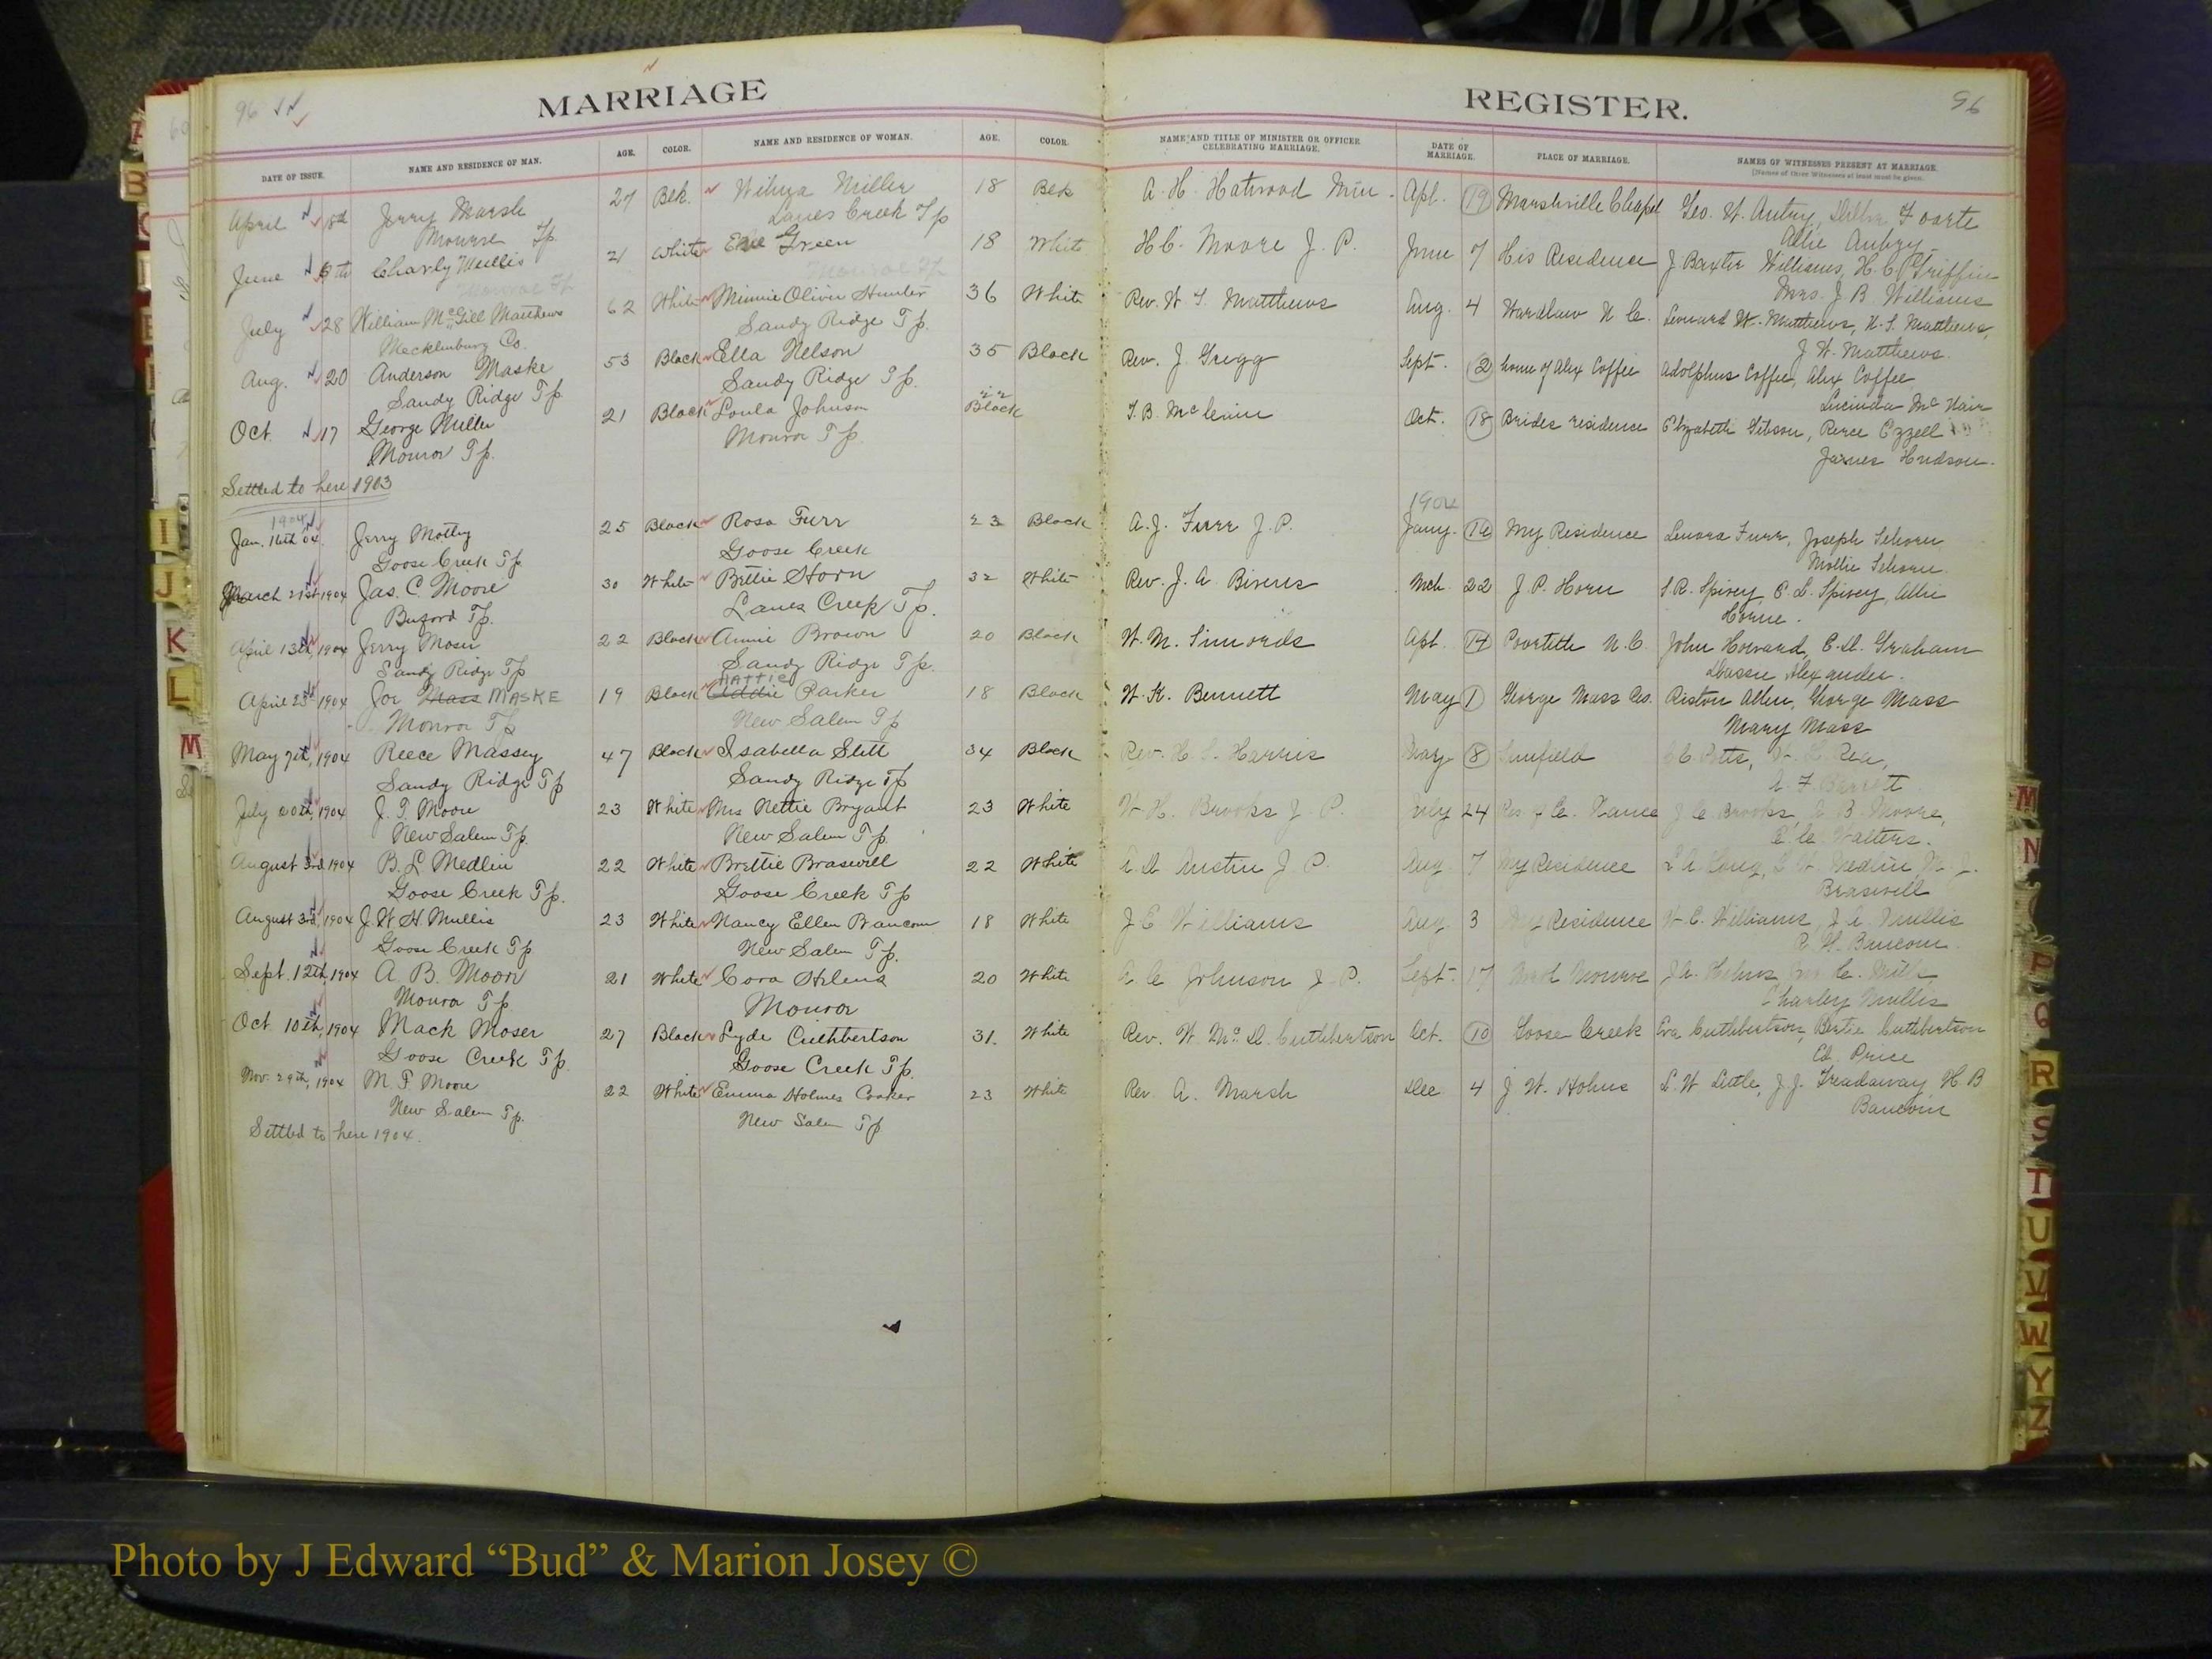 96
MARRIAGE
REGISTER.
96
DATE OF ISSUE. NAME AND RESIDENCE OF MAN. AGE. COLOR. NAME AND RESIDENCE OF WOMAN. AGE. COLOR. NAME AND TITLE OF MINISTER OR OFFICER CELEBRATING MARRIAGE. DATE OF MARRIAGE. PLACE OF MARRIAGE. NAMES OF WITNESSES PRESENT AT MARRIAGE.
[Names of three Witnesses at least must be given.
April 18th Jerry Marsh 27 Blk. Wilma Miller 18 Blk A. H. Hatwood Min. Apl. 19 Marshville Chapel Geo. W. Autry,
Monroe Tp Lanes Creek Tp Allie
June 6th Charly Mullis 21 White Green 18 White H C. Moore J. P. June 7 His Residence J Baxter Williams, H. C. Griffin
Monroe Tp Monroe Tp Mrs. J. B Williams
July 28 William McGill Matthews 62 White Minnie Oliver Hunter 36 White Rev. W S. Matthews Aug. 4 Wardlaw N. C. Leonard W. Matthews, N. S. Matthews,
Mecklenburg Co. Sandy Ridge Tp. J W. Matthews
Aug. 20 Anderson Maske 53 Black Ella Nelson 35 Black Rev. J. Gregg Sept. 2 home of Alex Coffee Adolphus Coffee, Alex Coffee
Sandy Ridge Tp Sandy Ridge Tp. Lucinda McNair
Oct. 17 George Miller 21 Black Loula Johnson 22 Black Oct. 18 Brides residence Elizabeth Gibson, Pierce Ezzell
Monroe Tp. Monroe Tp. James Hudson.
Settled to here 1903
1904 1904
Jan. 16th 04 Jerry Motley 25 Black Rosa Furr 23 Black A. J. Furr J. P. Jany. 16 My Residence Lenora Furr, Joseph
Goose Creek Tp Goose Creek Mollie
March 21st 1904 Jas. C. Moore 30 White Bettie Horn 32 White Rev. J. A. Bivens Mch. 22 J. P. Horn S. R. Spivey, E. L. Spivey, Allie
Buford Tp. Lanes Creek Tp. Horne.
April 13th, 1904 Jerry Moser 22 Black Annie Brown 20 Black W. M. Simonds Apl. 14 N. C. John Howard, E. D. Graham
Sandy Ridge Tp Sandy Ridge Tp. Alexander.
HATTIE
April 25th 1904 Joe Mass MASKE 19 Black Addie Parker 18 Black W. K. Bennett May 1 George Mass Res. Riston Allen, George Mass
Monroe Tp New Salem Tp Mary Mass
May 7th, 1904 Reece Massey 47 Black Isabella Stitt 34 Black Rev. H. S. Harris May 8 C C. Potts, W. L. Rea,
Sandy Ridge Tp Sandy Ridge Tp A. F. Barrett
July 20th, 1904 J. T. Moore 23 White Mrs Nettie Bryant 23 White W. H. Brooks J. P. July 24 J C. Brooks, B. Moore,
New Salem Tp. New Salem Tp. E. C. Walters.
August 3rd 1904 B. L Medlin 22 White Brettie Braswell 22 White A. A Austin J P. Aug 7 My Residence L A Long, L W Medlin, M. J.
Goose Creek Tp. Goose Creek Tp Braswell
August 3rd, 1904 J. W. H. Mullis 23 White Nancy Ellen Baucom 18 White J E Williams Aug. 3 My Residence W. E. Williams, J. A. Mullis
Goose Creek Tp New Salem Tp. R. H. Baucom.
Sept. 12th, 1904 A. B. Moon 21 White Cora Helms 20 White A. C Johnson J. P. Sept. 17 Monroe J. A. Helms,
Monroe Tp Monroe Charley Mullis
Oct 10th, 1904 Mack Moser 27 Black Lyde Cuthbertson 31. White Rev. W. Mc. D. Cuthbertson Oct. 10 Goose Creek Eva Cuthbertson, Bertie Cuthbertson
Goose Creek Tp. Goose Creek Tp. Ed. Price
Nov. 29th, 1904 M. F Moore 22 White Emma Holmes Cooker 23 White Rev. A. Marsh Dec 4 J W. Holms L. W Little, J. J. Treadaway H. B
New Salem Tp. New Salem Tp Baucom
Settled to here 1904.
I
J
K
L
M
M
N
P
Q
R
S
T
U
V
W
Y
Z
Photo by J Edward “Bud” & Marion Josey ©